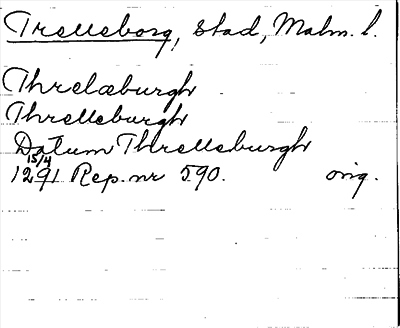 Trelleborg, stad, Malm. l.
Threlæburgh
Threlleburgh
Datum Threlleburgh
15/4
1291 Rep. nr 590. orig.